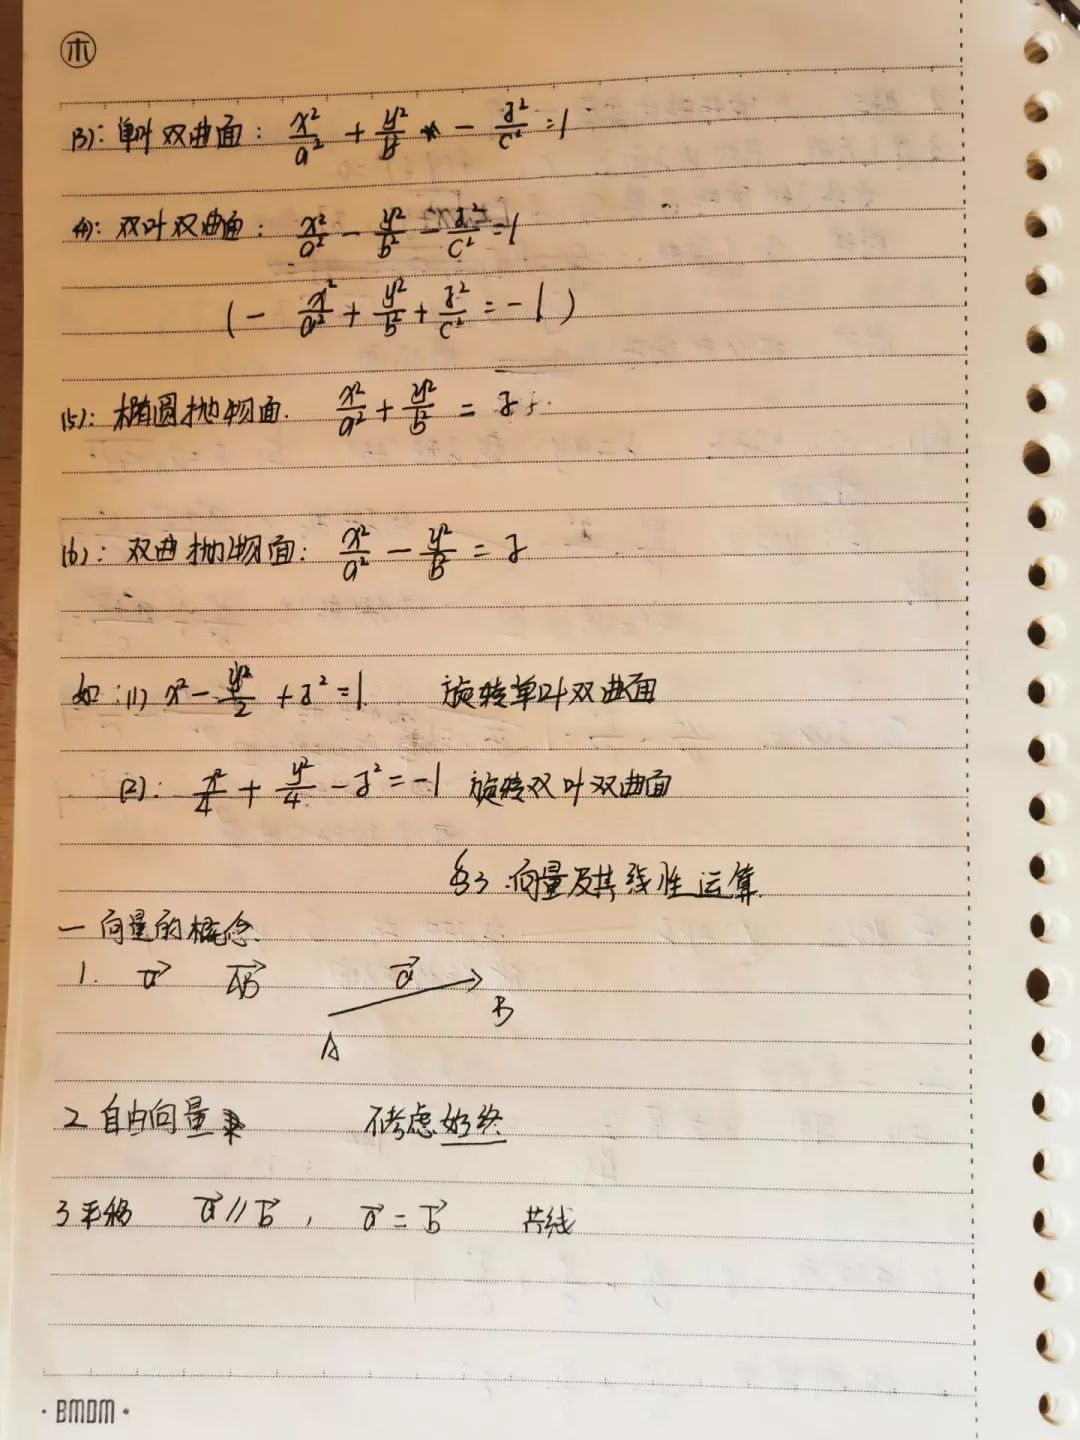 木
(3): 单叶双曲面: x²/a² + y²/b² - z²/c² = 1
(4): 双叶双曲面: x²/a² - y²/b² - z²/c² = 1
(- x²/a² + y²/b² + z²/c² = -1)
(5): 椭圆抛物面. x²/a² + y²/b² = z
(6): 双曲抛物面: x²/a² - y²/b² = z
如:(1) x² - y²/2 + z² = 1. 旋转单叶双曲面
(2): x²/4 + y²/4 - z² = -1 旋转双叶双曲面
§3.向量及其线性运算.
一 向量的概念.
1. a⃗ AB⃗ a⃗
A B
2 自由向量 不考虑始终
3 平移 a⃗ // b⃗ , a⃗ = b⃗ 共线
·BMDM·